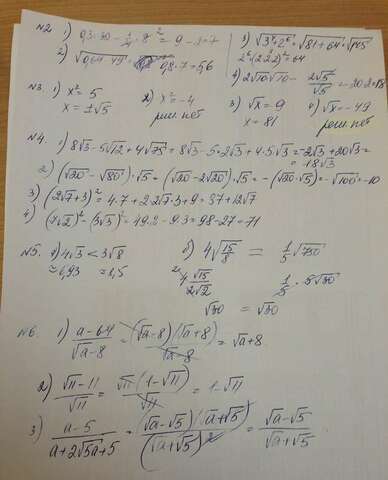 N2. 1) 0,3·30 - 1/4·8 = 9 - 2 = 7
2) √0,64·49 = 0,8·7 = 5,6
3) √3⁴+2⁶ = √81+64 = √145
2⁶(2·2·2)²=64
4) 2√10√10 - 2√5/√5 = 20-2=18
N3. 1) x² = 5
x = ±√5
2) x² = -4
реш. нет
3) √x = 9
x = 81
4) √x = -49
реш. нет
N4. 1) 8√3 - 5√12 + 4√75 = 8√3 - 5·2√3 + 4·5√3 = -2√3 + 20√3 =
= 18√3
2) (√20 - √80)·√5 = (√20 - 2√20)·√5 = -(√20·√5) = -√100 = -10
3) (2√7+3)² = 4·7 + 2·2√7·3 + 9 = 37 + 12√7
4) (7√2)² - (3√3)² = 49·2 - 9·3 = 98 - 27 = 71
N5. а) 4√3 < 3√8
≈ 6,93
б) 4√15/8 = 1/5√750
4√15/2√2
1/5 · 5√30
√30 = √30
N6. 1) a-64/√a-8 = (√a-8)(√a+8)/√a-8 = √a+8
2) √11-11/√11 = √11(1-√11)/√11 = 1-√11
3) a-5/a+2√5a+5 = (√a-√5)(√a+√5)/(√a+√5)² = √a-√5/√a+√5